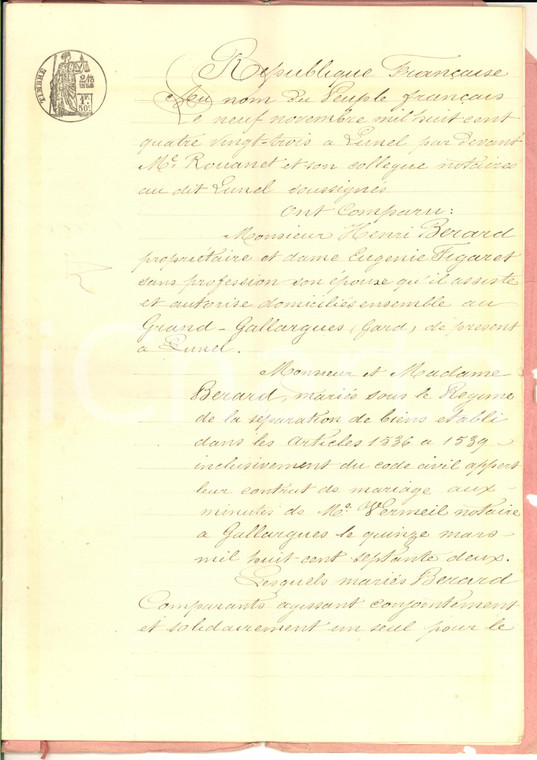 République Française
Au nom du Peuple français
Le neuf novembre mil huit cent
quatre vingt-trois a Lunel par devant
Me. Rouanet et son collegue notaires
au dit Lunel soussignés
Ont Comparu:
Monsieur Henri Berard
propriétaire et dame Eugenie Figaret
sans profession son épouse qu'il assiste
et autorise domiciliés ensemble au
Grand-Gallargues, (Gard), de présent
a Lunel.
Monsieur et Madame
Berard, mariés sous le Regime
de la séparation de biens etabli
dans les articles 1536 a 1539
inclusivement du code civil appert
leur contrat de mariage aux
minutes de Me. Vermeil notaire
a Gallargues le quinze mars
mil huit cent septante deux.
Lesquels mariés Berard
Comparants agissant conjointement
et solidairement un seul pour le
TIMBRE